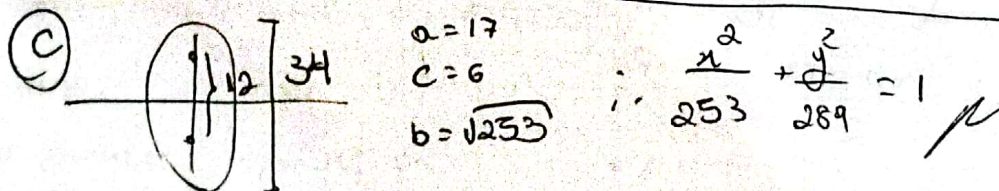 C
12
34
a = 17
c = 6
b = √253
∴ x²/253 + y²/289 = 1